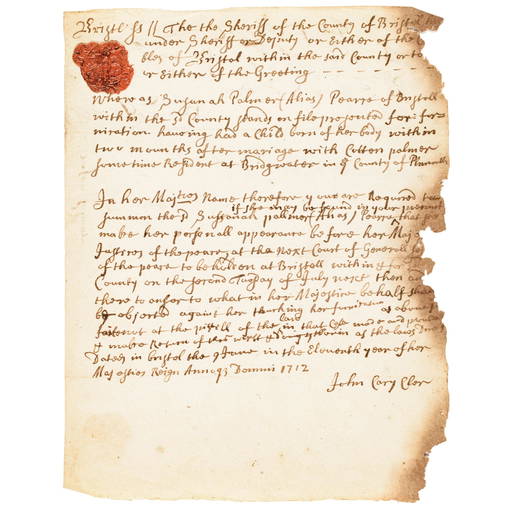 Bristl ss // The the Sheriff of the County of Bristol
under Sheriff or Deputy or Either of the
bles of Bristol within the said County or to
or Either of the Greeting
Where as Susanah Palmer (Alias) Pearce of Bristoll
within the County stands on file presented for: for=
nication having had a Child born of her body within
two mounths after mariage with Cotton palmer
sometime Resident at Bridgwater in ye County of
In her Majties Name therefore you are Required
if she may be found in your
summon the sd Susanah palmer Alias / Pearce that
make her personall appearance before her Maj
Justices of the peace at the Next Court of Generall
of the peace to be holten at Bristoll within
County on the second Tusday of July next then
there to answer to what in her Majestice behalf
be objected against her Touching her as above
faile not at the of the law in that Case made and
& make Return of this writt as the laws
Dated in bristol the 9 June in the Eleventh year of her
Majesties Reign Annoqs Domini 1712
John Cary Cler